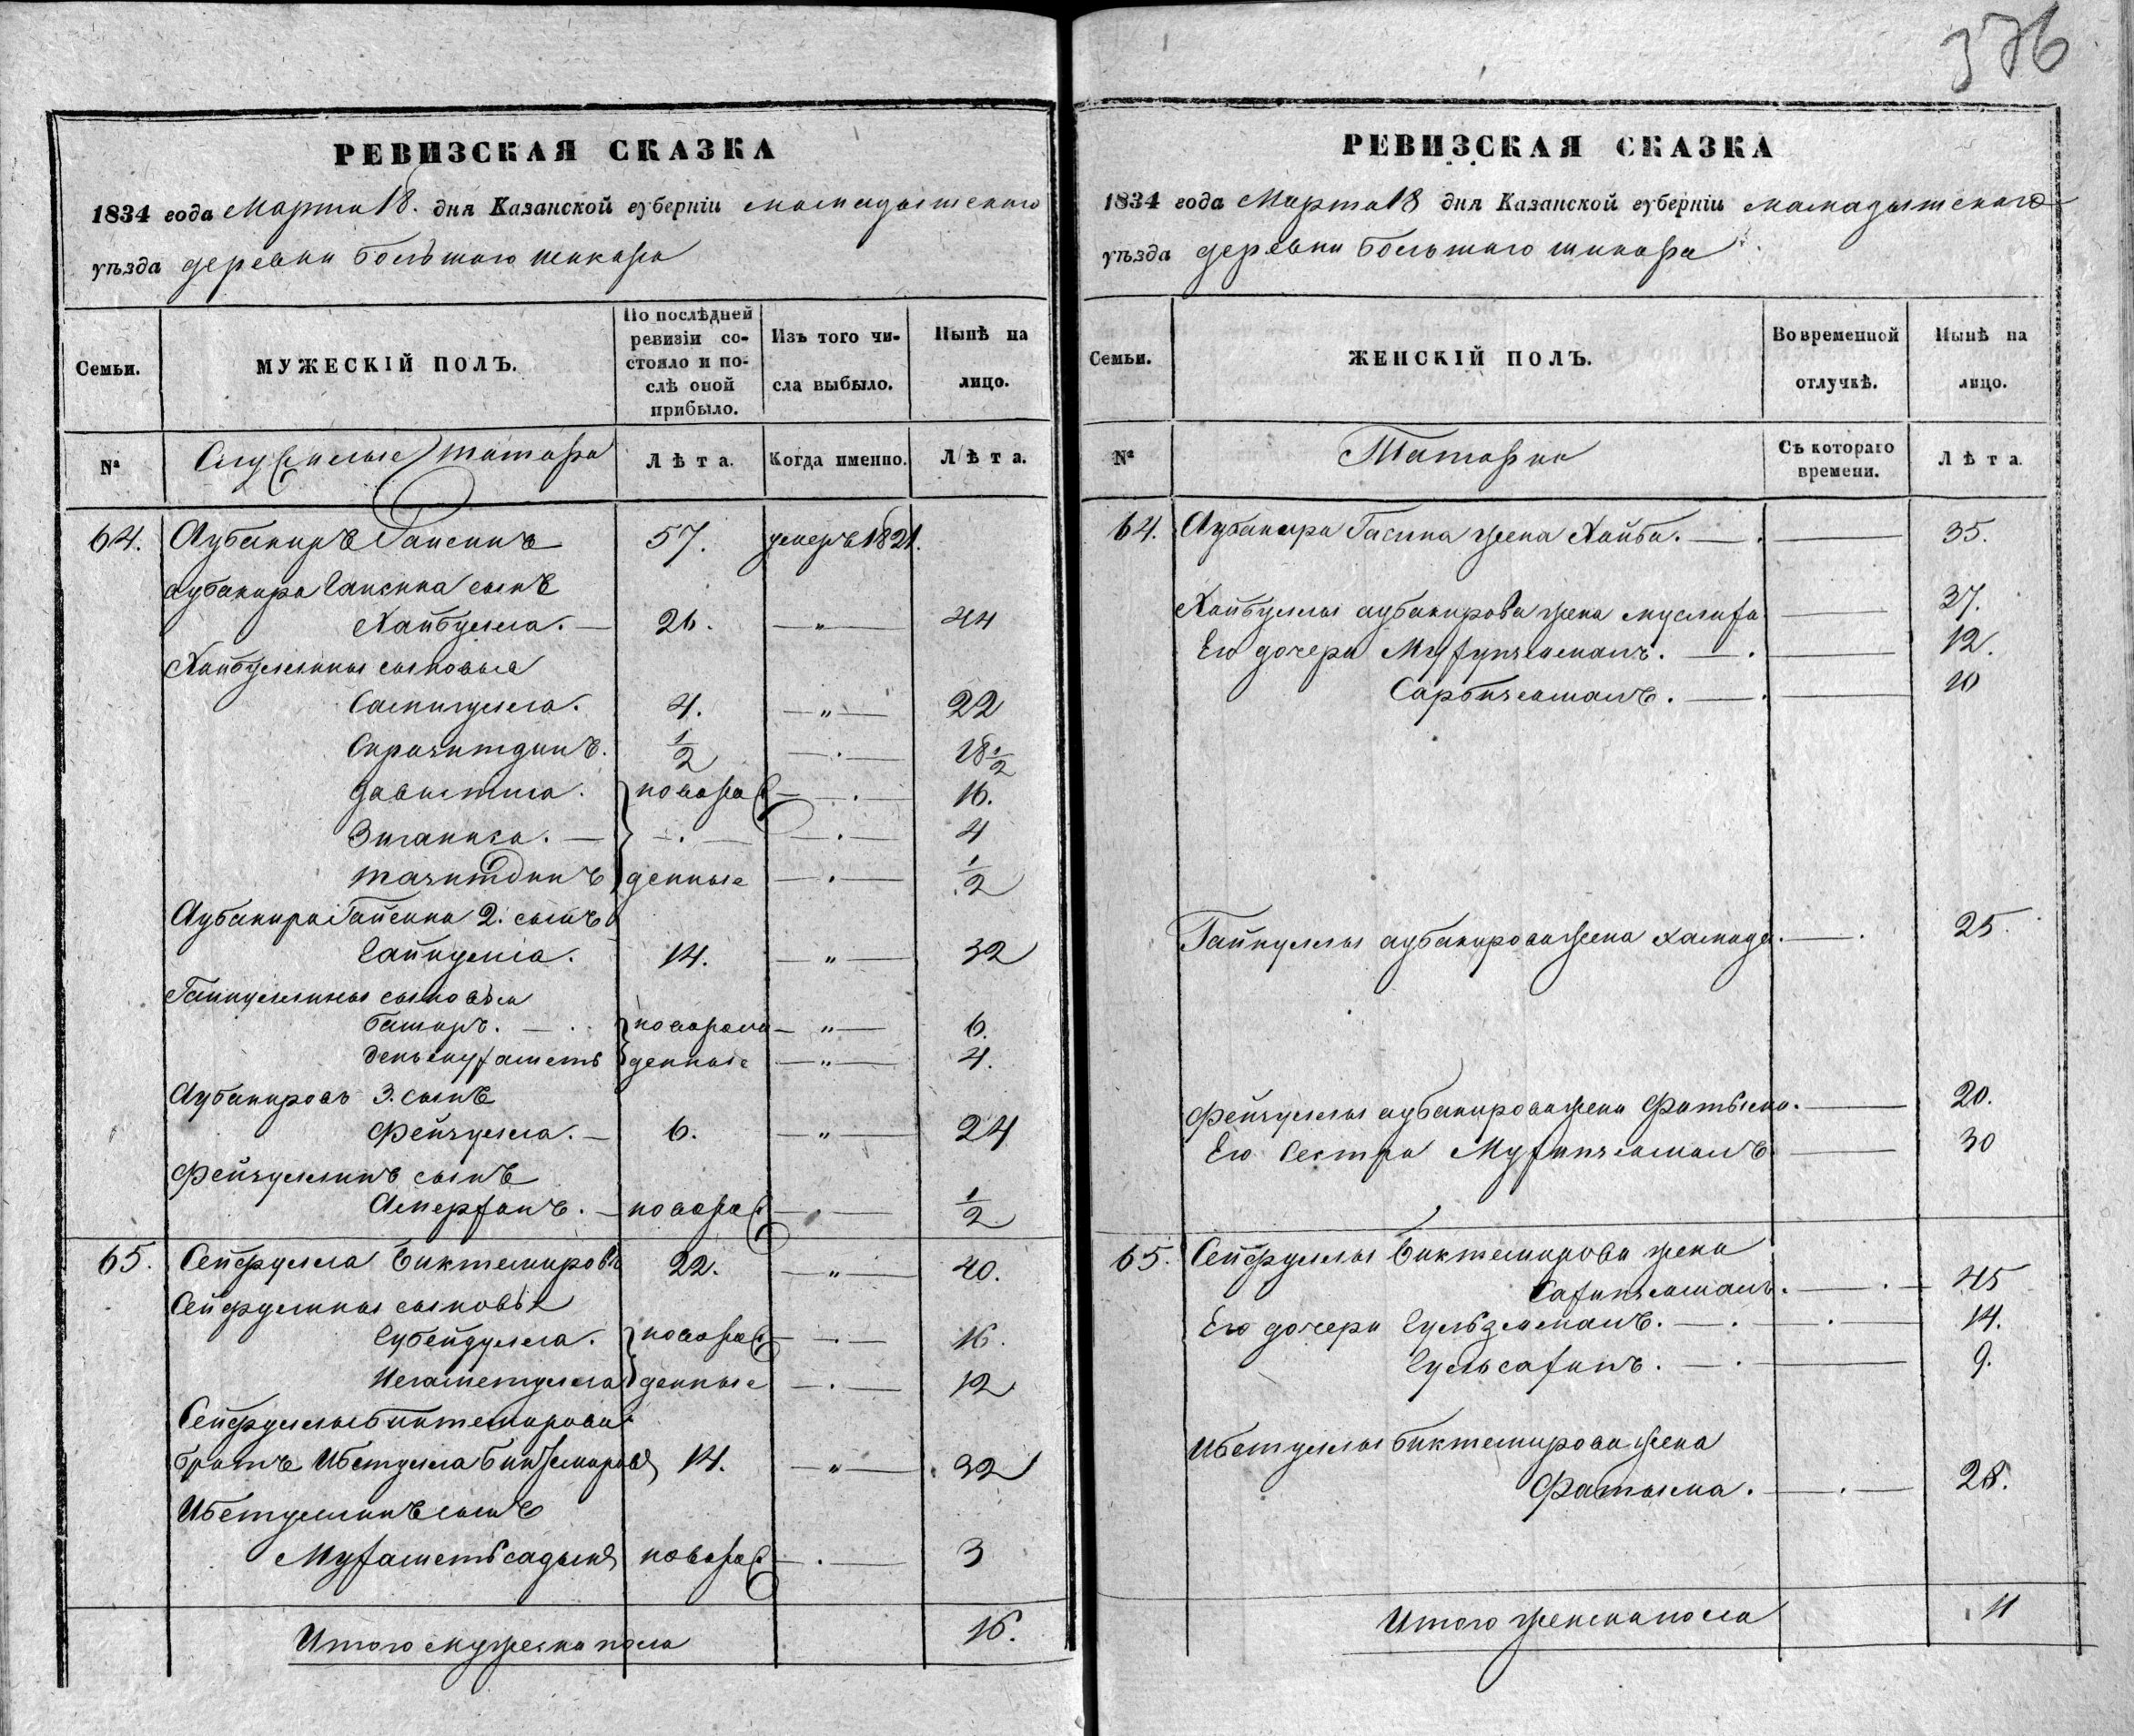 376
РЕВИЗСКАЯ СКАЗКА
1834 года Марта 18. дня Казанской губерніи мамадышскаго
уѣзда деревни большаго шикара
Семьи.
МУЖЕСКІЙ ПОЛЪ.
По послѣдней ревизіи состояло и послѣ оной прибыло.
Изъ того числа выбыло.
Нынѣ на лицо.
№
Служилые татара
Лѣта.
Когда именно.
Лѣта.
64. Аубакиръ Гаисинъ 57. умеръ 1821.
аубакира Гаисина сынъ
Хайбулла. — 26. — " — 44
Хайбуллины сыновья
Самигулла. 4. — " — 22
Сиразитдинъ. 1/2 — . — 18 1/2
давлетша. новорож — . — 16.
Зиганша. — — . — — . — 4
тазитдинъ денные — . — 1/2
Аубакира Гайсина 2. сынъ
Гайнулла. 14. — " — 32
Гайнуллины сыновья
баширъ. — . новорож — " — 6.
деньмухаметъ денные — " — 4.
Аубакировъ 3. сынъ
Фейзулла. — 6. — " — 24
Фейзуллинъ сынъ
Амерханъ. — новорож — . — 1/2
65. Сейфулла биктемировъ 22. — " — 40.
Сейфулины сыновья
Губейдулла. новорож — . — 16.
Негаметулла денные — . — 12
Сейфуллы биктемирова
братъ Ибетулла биктемировъ 14. — " — 32
Ибетуллинъ сынъ
Мухаметьсадыкъ новорож — . — 3
Итого мужеска пола 16.
РЕВИЗСКАЯ СКАЗКА
1834 года Марта 18 дня Казанской губерніи мамадышскаго
уѣзда деревни большаго шикара
Семьи.
ЖЕНСКІЙ ПОЛЪ.
Во временной отлучкѣ.
Нынѣ на лицо.
№
Татарки
Съ котораго времени.
Лѣта.
64. Аубакира Гасина жена Хайба. — . — 35.
Хайбуллы аубакирова жена — 37.
Его дочери — . — 12.
Сарбизямалъ. — . — 10
Гайнуллы аубакирова жена хамида. — . 25.
Фейзуллы аубакирова жена Фатыма. — 20.
Его Сестра — 30
65. Сейфуллы биктемирова жена
— . — 45
Его дочери Гульземалъ. — . — . — 14.
Гульсахипъ. — . — 9.
Ибетуллы биктемирова жена
Фатыма. — . — 28.
Итого женска пола 11